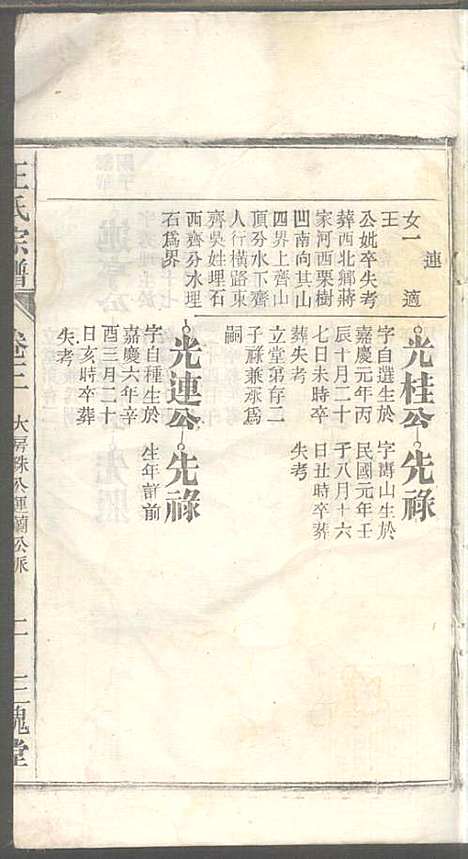 女一 連 適
王
公妣卒失考
葬西北鄉蔣
家河西栗樹
凹南向其山
四界上齊山
頂分水下齊
人行橫路東
齊吳姓理石
西齊分水理
石為界
光桂公
字自選生於
嘉慶元年丙
辰十月二十
七日未時卒
葬失考
立堂弟存二
子祿兼承為
嗣
先祿
字壽山生於
民國元年壬
子八月十六
日丑時卒葬
失考
光連公
字自種生於
嘉慶六年辛
酉三月二十
日亥時卒葬
失考
先祿
生年前
王氏宗譜
卷三
大房
公運蘭公派
二
三槐堂